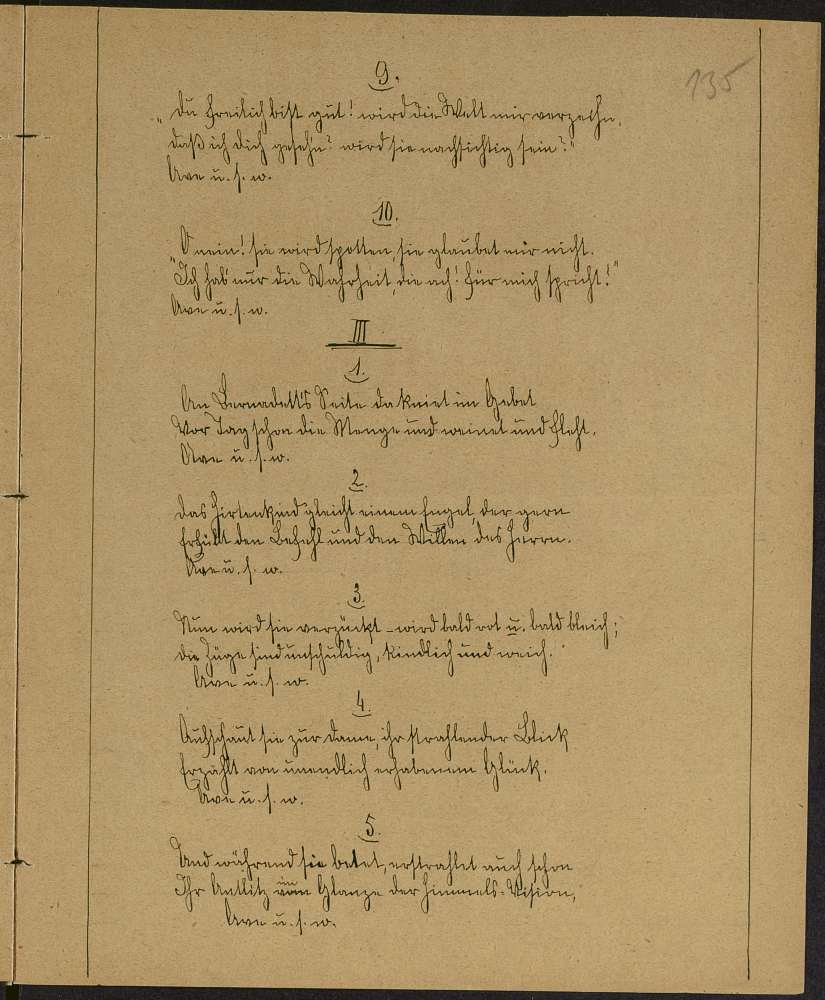 135
9.
„Du freilich bist gut! wird die Welt mir verzeihn,
daß ich dich geseh'n? wird sie nachsichtig sein?"
Ave u. s. w.
10.
O nein! sie wird spotten, sie glaubet mir nicht.
"Ich hab' nur die Wahrheit, die ach! für mich spricht!"
Ave u. s. w.
III
1.
An Bernadett's Seite da kniet im Gebet
Vor Tag schon die Menge und weinet und fleht.
Ave u. s. w.
2.
Das Hirtenkind gleicht einem Engel, der gern
Erfüllt den Befehl und den Willen des Herrn.
Ave u. s. w.
3.
Nun wird sie verzückt – wird bald rot u. bald bleich;
Die Züge sind unschuldig, kindlich und weich.
Ave u. s. w.
4.
Aufschaut sie zur Dame, ihr strahlender Blick
Erzählt von unendlich erhabenem Glück.
Ave u. s. w.
5.
Und während sie betet, erstrahlet auch schon
Ihr Antlitz im Glanze der Himmels-Vision,
Ave u. s. w.